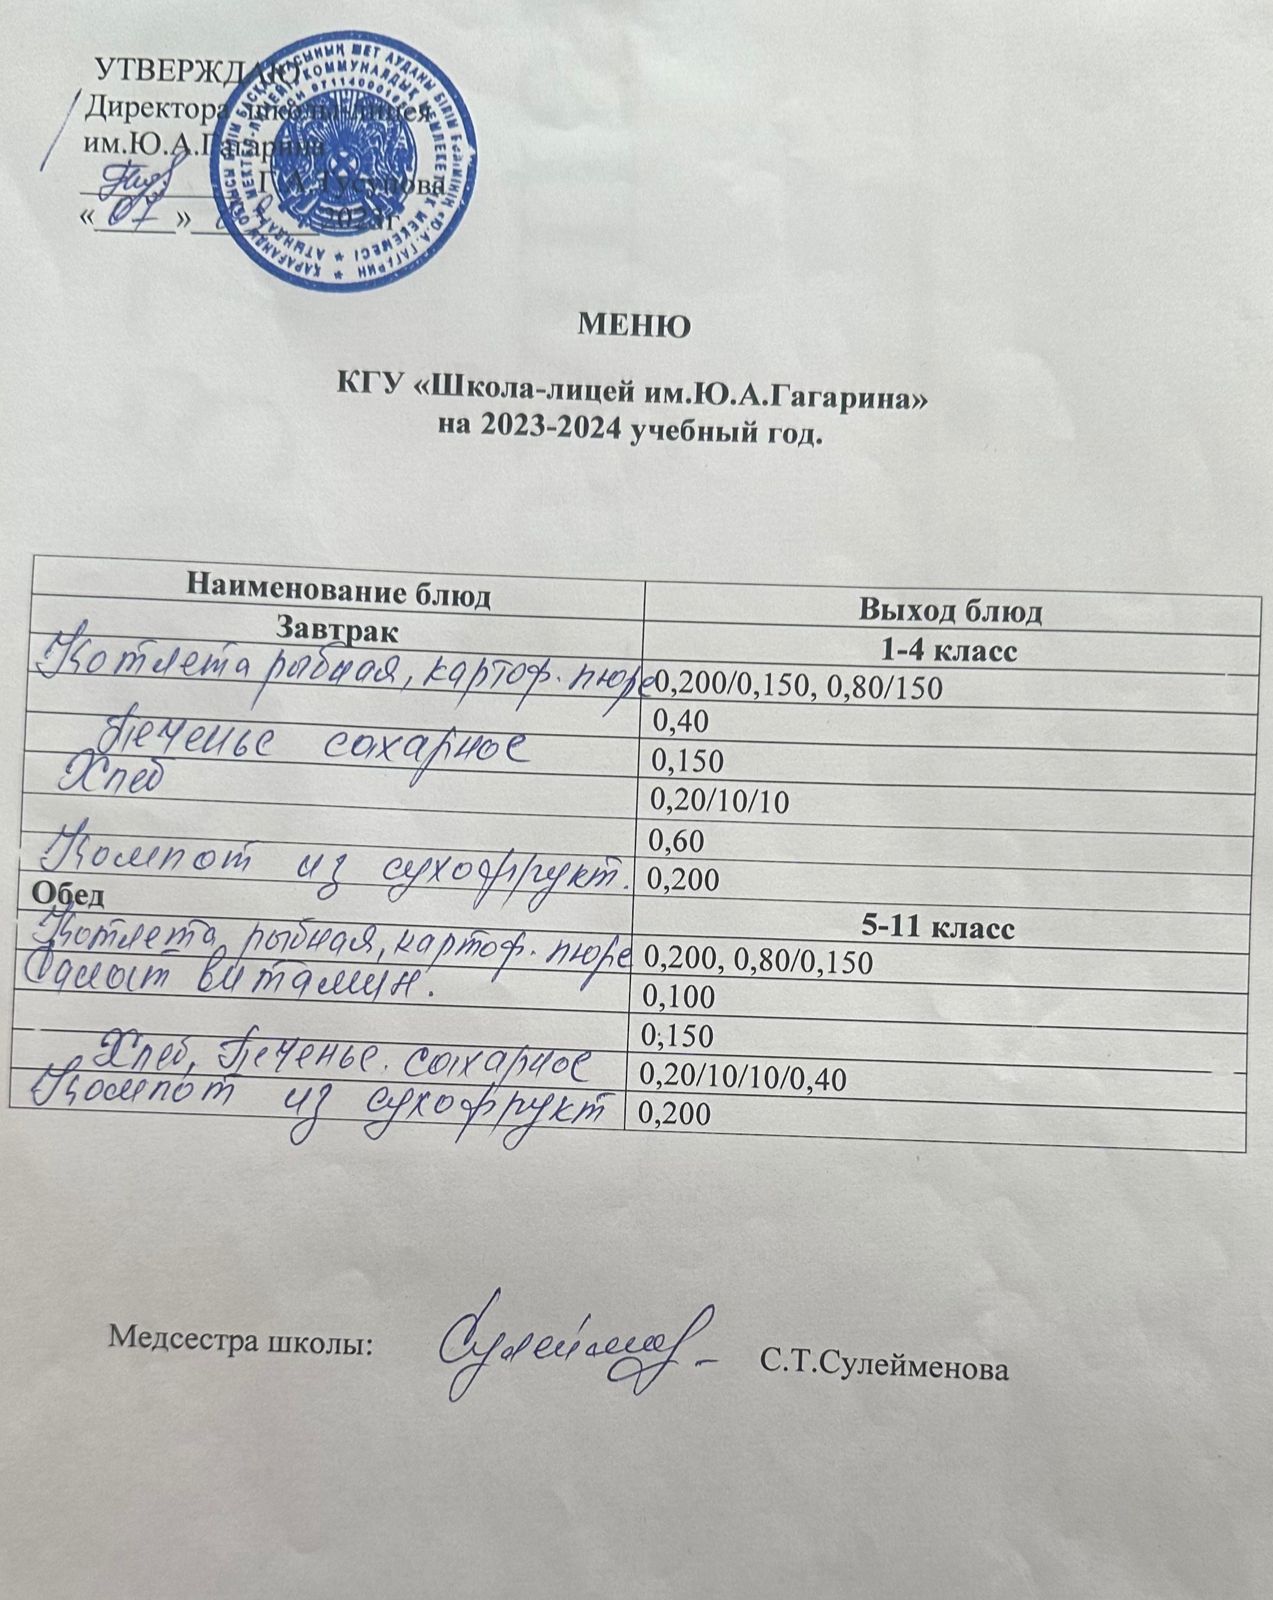 УТВЕРЖДАЮ
Директора школы-лицея
им.Ю.А.Гагарина
Г.А.Тусупова
« 07 » 2023г
МЕНЮ
КГУ «Школа-лицей им.Ю.А.Гагарина»
на 2023-2024 учебный год.
Наименование блюд Выход блюд
Завтрак 1-4 класс
Котлета рыбная, картоф. пюре 0,200/0,150, 0,80/150
0,40
Печенье сахарное 0,150
Хлеб 0,20/10/10
0,60
Компот из сухофрукт. 0,200
Обед 5-11 класс
Котлета рыбная, картоф. пюре 0,200, 0,80/0,150
Салат витамин. 0,100
0;150
Хлеб, Печенье. сахарное 0,20/10/10/0,40
Компот из сухофрукт 0,200
Медсестра школы: С.Т.Сулейменова